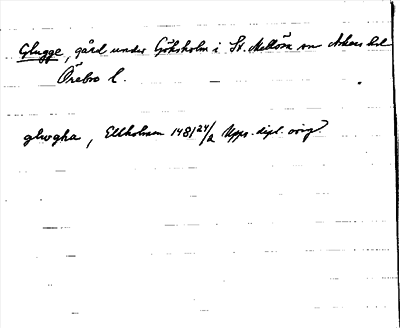 Glugge, gård under Göksholm i St. Mellösa sn Askers hd
Örebro l.
glwgha, Ekholmen 1481 24/2 Upps. dipl. orig?